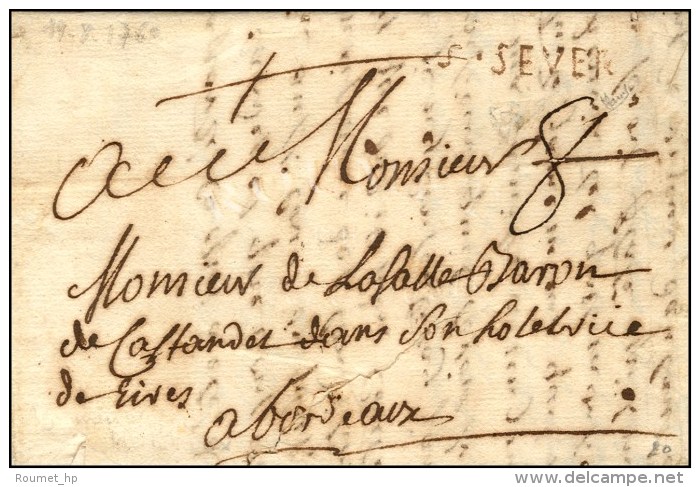 S. SEVER
A Monsieur 8
Monsieur de Lasalle Baron
de Castandet dans son hotel rüe
de Eires
a bordeaux
20
Roumet_hp
© www.delcampe.net